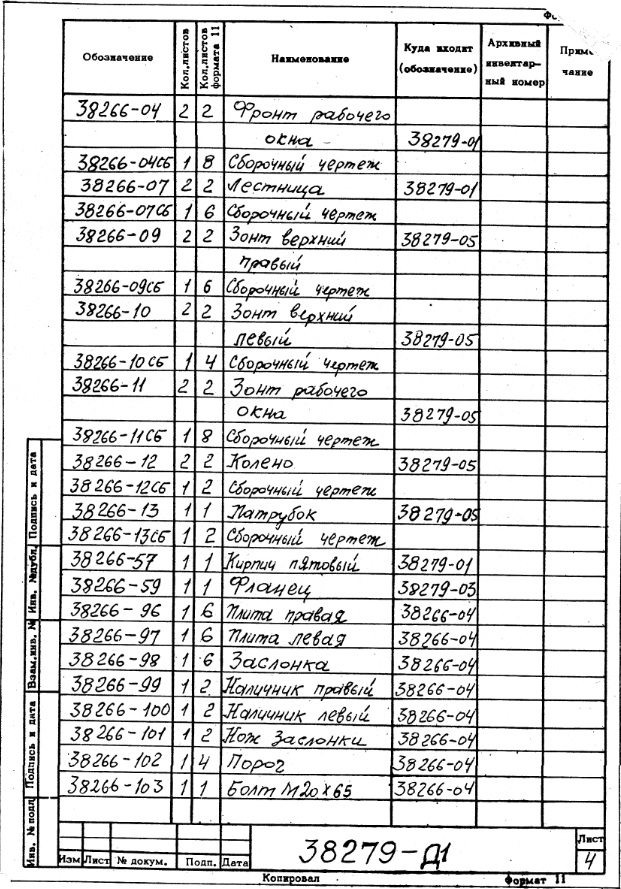 Обозначение Кол.листов Кол.листов формата 11 Наименование Куда входит (обозначение) Архивный инвентарный номер Приме чание
38266-04 2 2 Фронт рабочего
окна 38279-01
38266-04СБ 1 8 Сборочный чертеж
38266-07 2 2 Лестница 38279-01
38266-07СБ 1 6 Сборочный чертеж
38266-09 2 2 Зонт верхний 38279-05
правый
38266-09СБ 1 6 Сборочный чертеж
38266-10 2 2 Зонт верхний
левый 38279-05
38266-10СБ 1 4 Сборочный чертеж
38266-11 2 2 Зонт рабочего
окна 38279-05
38266-11СБ 1 8 Сборочный чертеж
38266-12 2 2 Колено 38279-05
38266-12СБ 1 2 Сборочный чертеж
38266-13 1 1 Патрубок 38279-05
38266-13СБ 1 2 Сборочный чертеж
38266-57 1 1 Кирпич пятовый 38279-01
38266-59 1 1 Фланец 38279-03
38266-96 1 6 Плита правая 38266-04
38266-97 1 6 Плита левая 38266-04
38266-98 1 6 Заслонка 38266-04
38266-99 1 2 Наличник правый 38266-04
38266-100 1 2 Наличник левый 38266-04
38266-101 1 2 Нож заслонки 38266-04
38266-102 1 4 Порог 38266-04
38266-103 1 1 Болт М20х65 38266-04
Подпись и дата
Инв. №дубл.
Взам.инв. №
Подпись и дата
Инв. № подл
Изм Лист № докум. Подп. Дата
38279-Д1
Лист
4
Копировал Формат 11